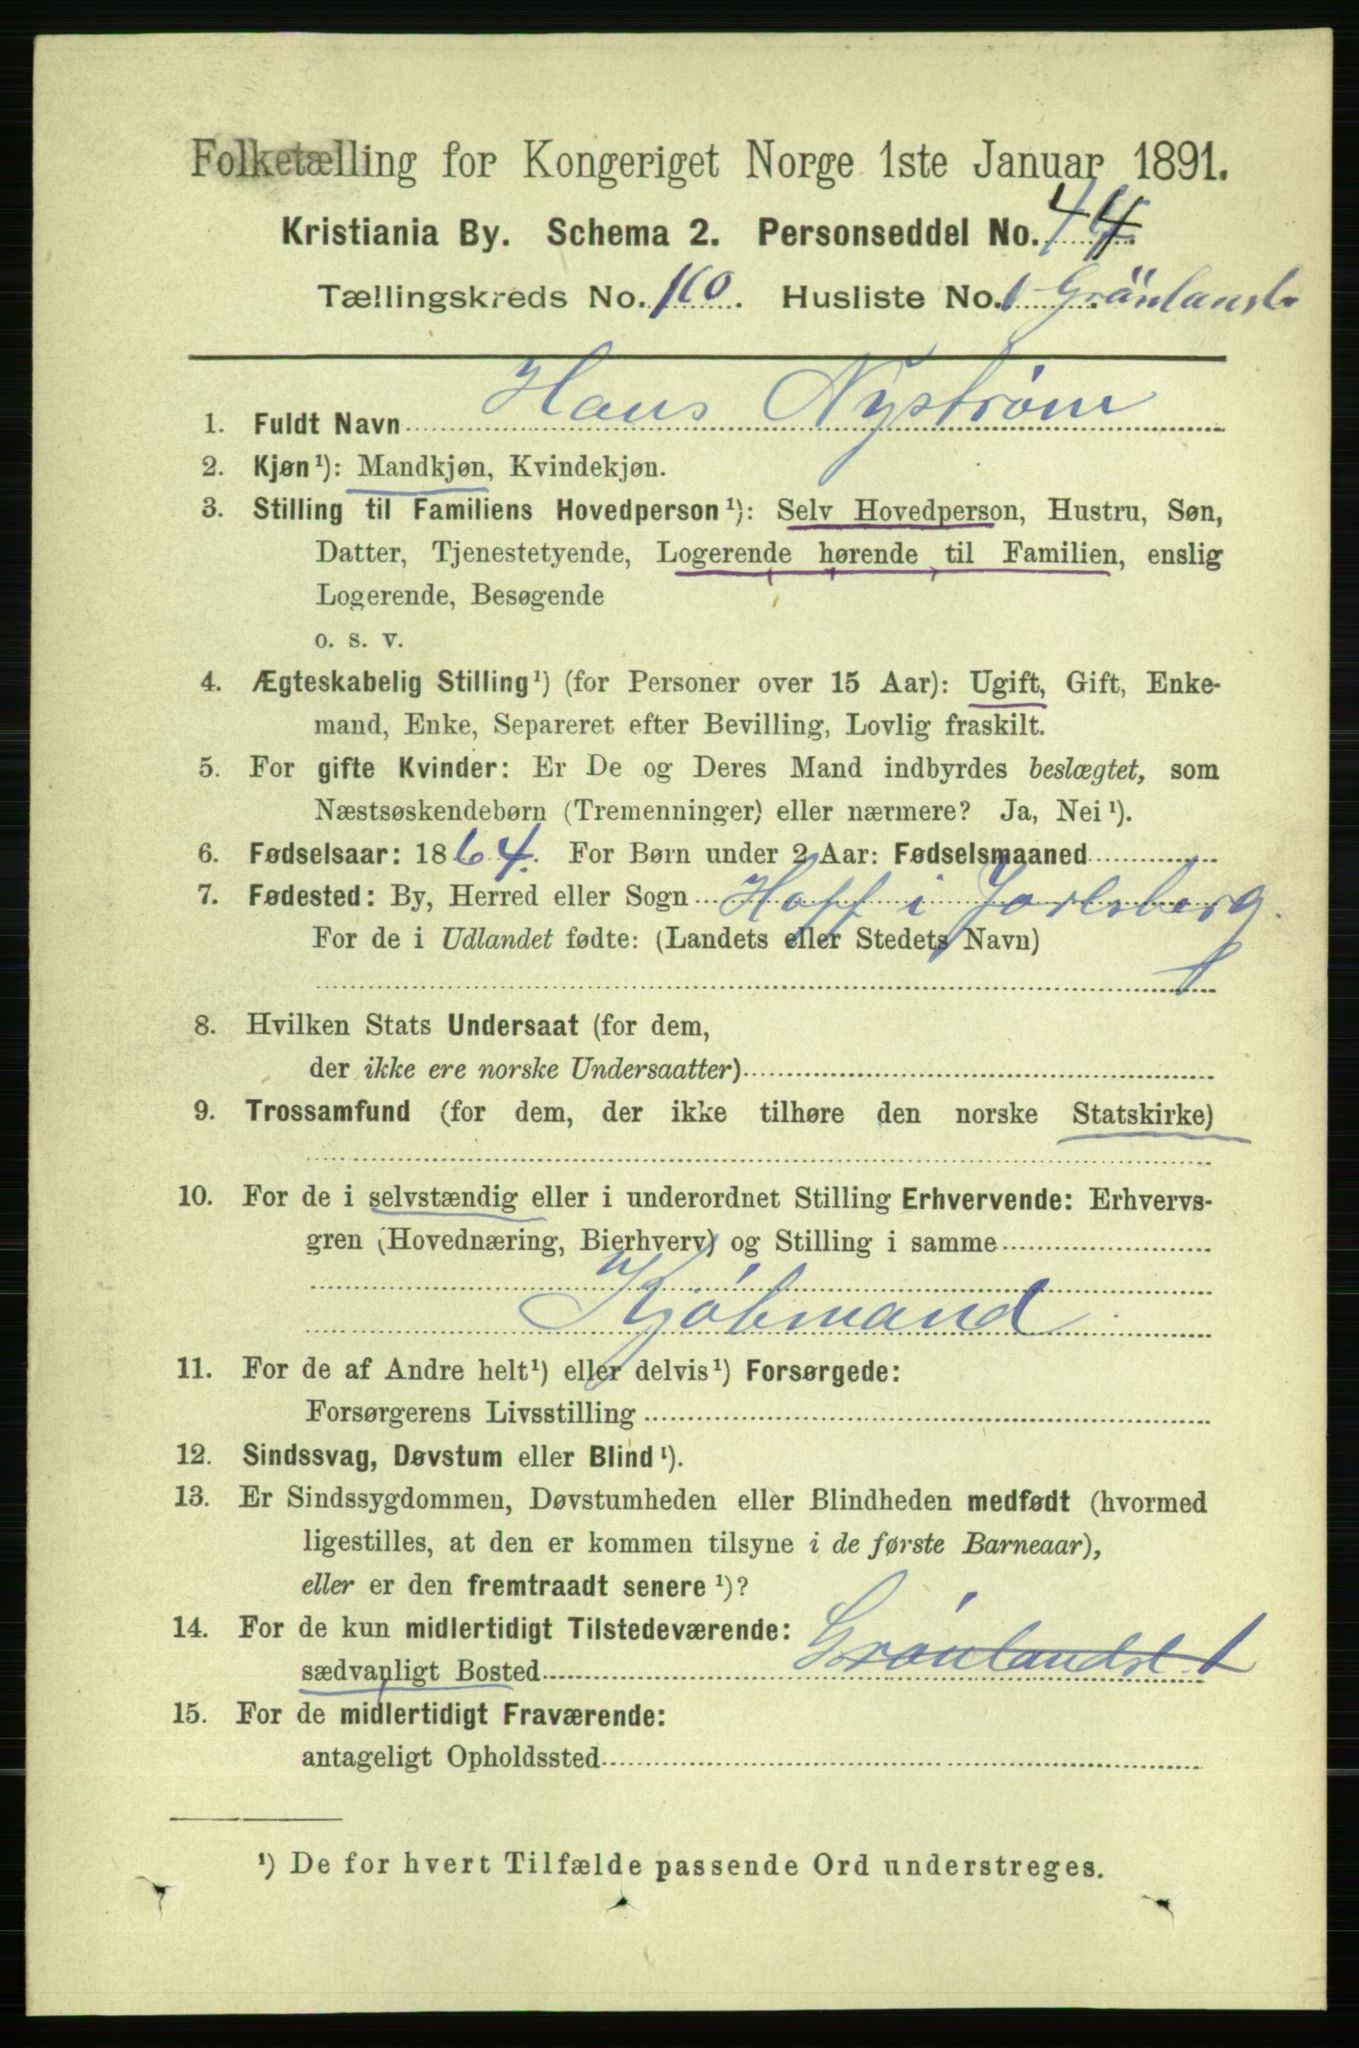 Folketælling for Kongeriget Norge 1ste Januar 1891.
Kristiania By. Schema 2. Personseddel No. 44.
Tællingskreds No. 160. Husliste No. 1 Grönlandsl.
1. Fuldt Navn Hans Nystrøm
2. Kjøn¹): Mandkjøn, Kvindekjøn.
3. Stilling til Familiens Hovedperson¹): Selv Hovedperson, Hustru, Søn,
Datter, Tjenestetyende, Logerende hørende til Familien, enslig
Logerende, Besøgende
o. s. v.
4. Ægteskabelig Stilling¹) (for Personer over 15 Aar): Ugift, Gift, Enke-
mand, Enke, Separeret efter Bevilling, Lovlig fraskilt.
5. For gifte Kvinder: Er De og Deres Mand indbyrdes beslægtet, som
Næstsøskendebørn (Tremenninger) eller nærmere? Ja, Nei¹).
6. Fødselsaar: 1864. For Børn under 2 Aar: Fødselsmaaned
7. Fødested: By, Herred eller Sogn Hoff i Jarlsberg.
For de i Udlandet fødte: (Landets eller Stedets Navn)
8. Hvilken Stats Undersaat (for dem,
der ikke ere norske Undersaatter)
9. Trossamfund (for dem, der ikke tilhøre den norske Statskirke)
10. For de i selvstændig eller i underordnet Stilling Erhvervende: Erhvervs-
gren (Hovednæring, Bierhverv) og Stilling i samme
Kjøbmand
11. For de af Andre helt¹) eller delvis¹) Forsørgede:
Forsørgerens Livsstilling
12. Sindssvag, Døvstum eller Blind¹).
13. Er Sindssygdommen, Døvstumheden eller Blindheden medfødt (hvormed
ligestilles, at den er kommen tilsyne i de første Barneaar),
eller er den fremtraadt senere¹)?
14. For de kun midlertidigt Tilstedeværende:
sædvanligt Bosted Grønlandsl. 1
15. For de midlertidigt Fraværende:
antageligt Opholdssted
¹) De for hvert Tilfælde passende Ord understreges.